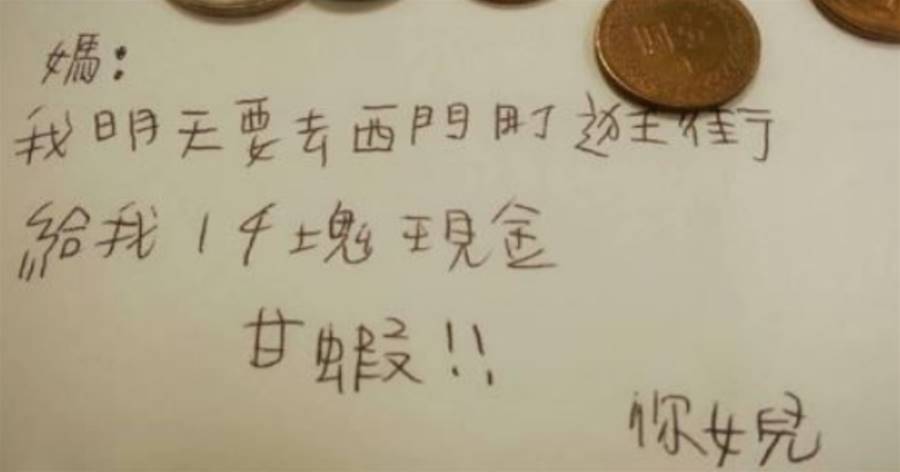 媽：
我明天要去西門町逛街
給我1千塊現金
甘蝦!!
你女兒